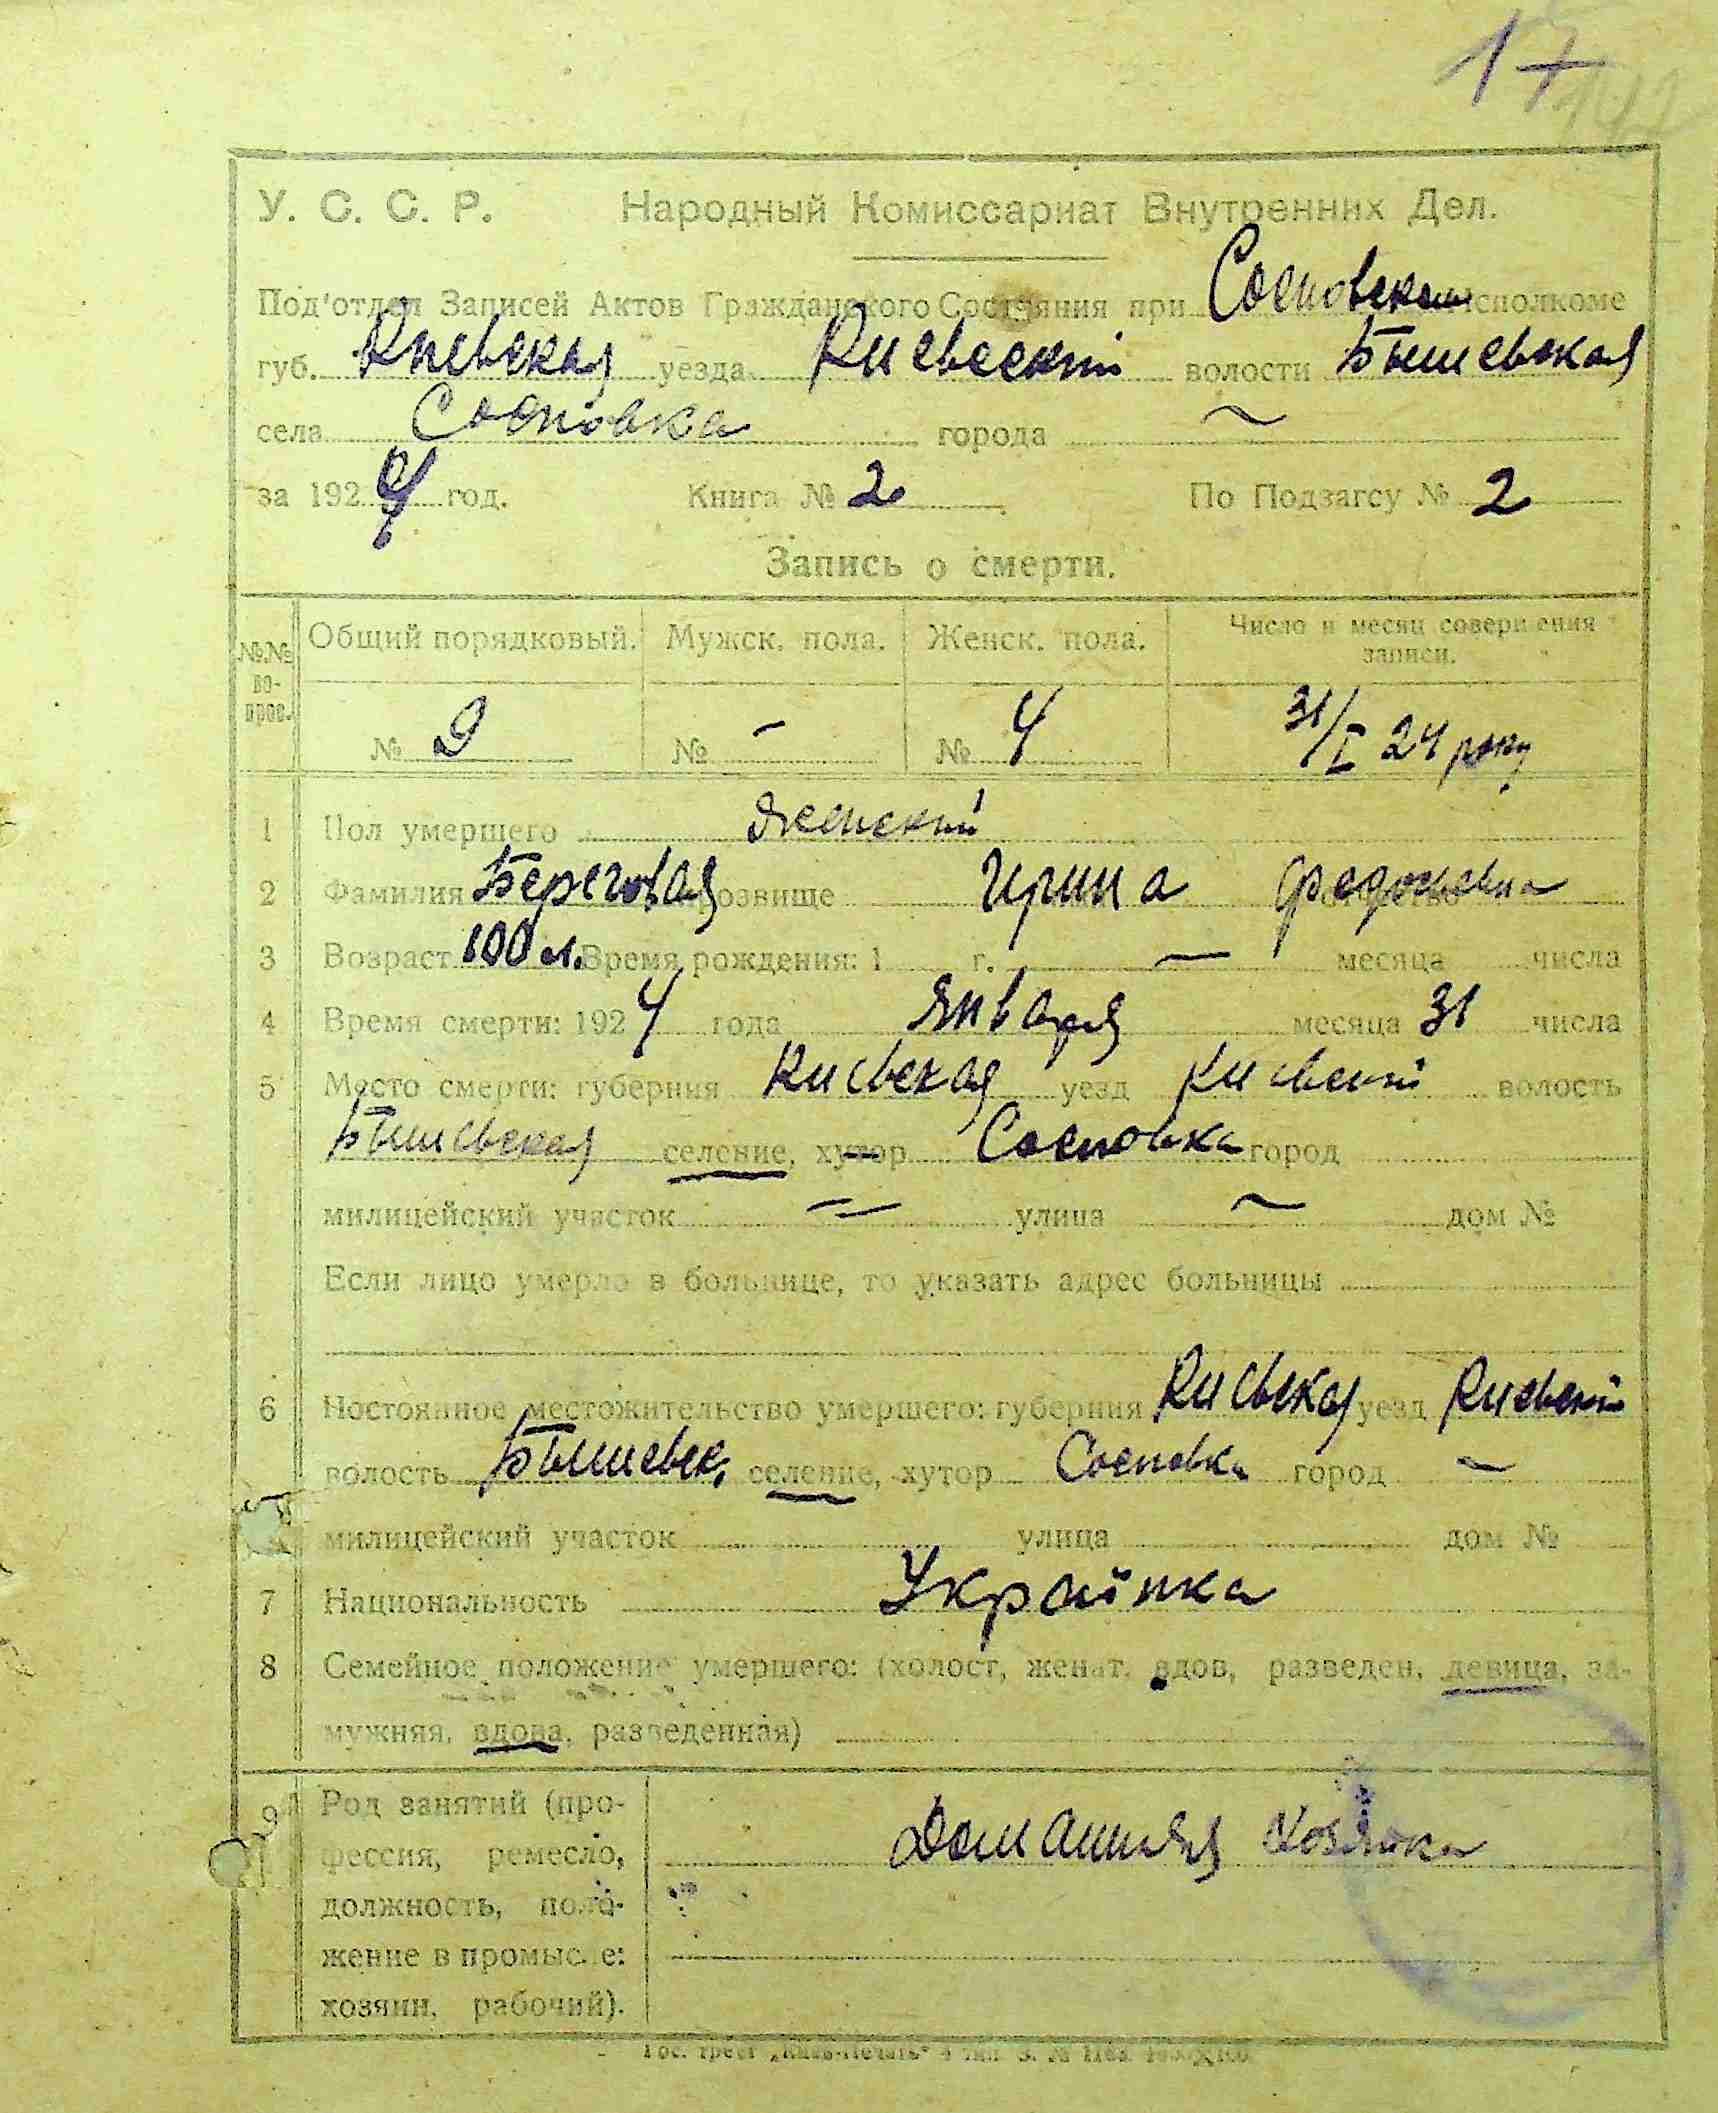 17
У. С. С. Р. Народный Комиссариат Внутренних Дел.
Под'отдел Записей Актов Гражданского Состояния при Сосновском исполкоме
губ. Киевская уезда Киевский волости Бышевская
села Сосновка города —
за 1924 год. Книга № 2 По Подзагсу № 2
Запись о смерти.
№№ во- прос. Общий порядковый. Мужск. пола. Женск. пола. Число и месяц совершения записи.
№ 9 № - № 4 31/I 24 року
1 Пол умершего женский
2 Фамилия Береговая прозвище Ирина Федосьевна отчество
3 Возраст 100 л. Время рождения: 1 г. — месяца числа
4 Время смерти: 1924 года января месяца 31 числа
5 Место смерти: губерния Киевская уезд Киевский волость
Бышевская селение, хутор Сосновка город
милицейский участок = улица — дом №
Если лицо умерло в больнице, то указать адрес больницы
6 Постоянное местожительство умершего: губерния Киевская уезд Киевский
волость Бышевск. селение, хутор Сосновка город —
милицейский участок улица дом №
7 Национальность Українка
8 Семейное положение умершего: (холост, женат, вдов, разведен, девица, за-
мужняя, вдова, разведенная)
9 Род занятий (про-
фессия, ремесло, Домашняя хозяйка
должность, поло-
жение в промысле:
хозяин, рабочий).